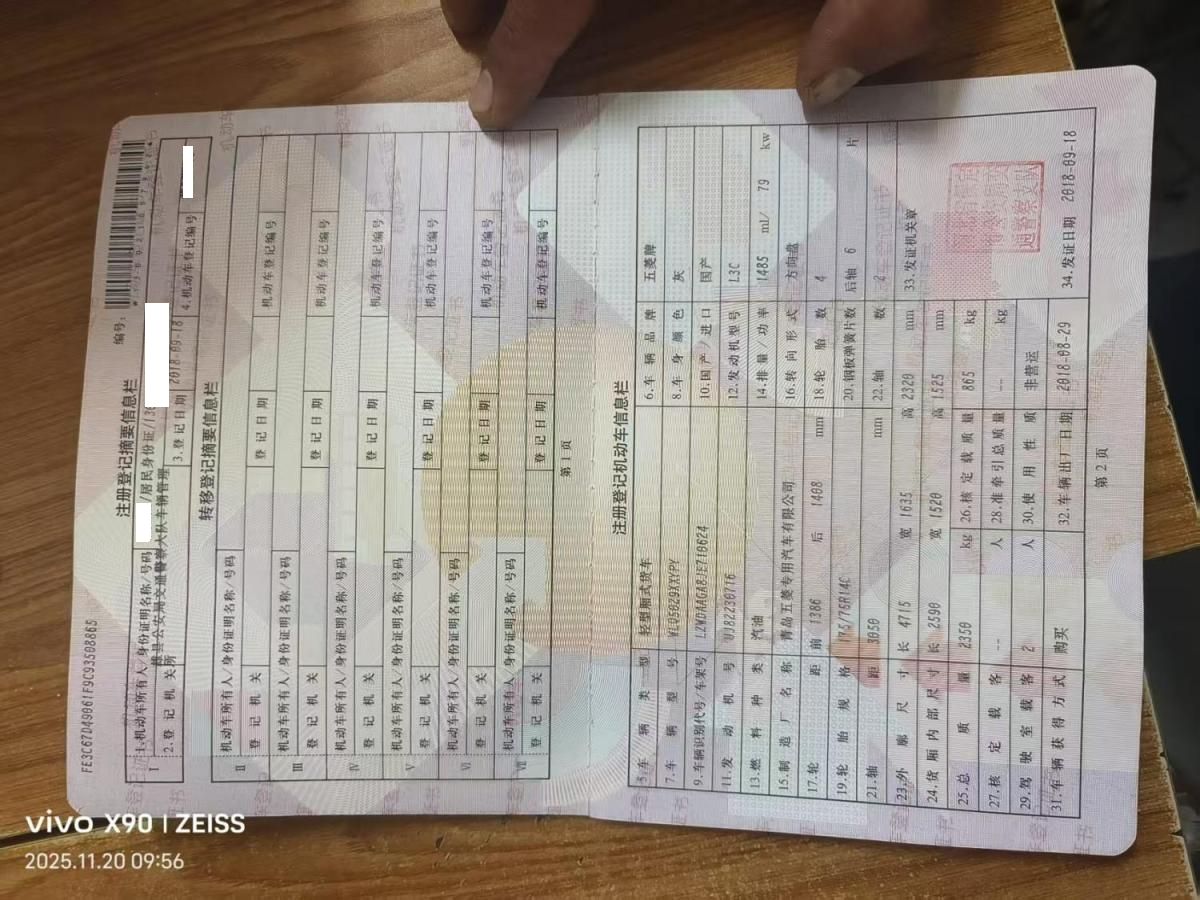 FE3C67D49061F9C93508865
注册登记摘要信息栏
编号：
Ⅰ
1.机动车所有人/身份证明名称/号码 /居民身份证/13
2.登记机关 县公安局交通警察大队车辆管理所 3.登记日期 2018-09-18 4.机动车登记编号
转移登记摘要信息栏
Ⅱ
机动车所有人/身份证明名称/号码
登记机关 登记日期 机动车登记编号
Ⅲ
机动车所有人/身份证明名称/号码
登记机关 登记日期 机动车登记编号
Ⅳ
机动车所有人/身份证明名称/号码
登记机关 登记日期 机动车登记编号
Ⅴ
机动车所有人/身份证明名称/号码
登记机关 登记日期 机动车登记编号
Ⅵ
机动车所有人/身份证明名称/号码
登记机关 登记日期 机动车登记编号
Ⅶ
机动车所有人/身份证明名称/号码
登记机关 登记日期 机动车登记编号
第 1 页
注册登记机动车信息栏
5.车辆类型 轻型厢式货车 6.车辆品牌 五菱牌
7.车辆型号 WLQ5029XXYPY 8.车身颜色 灰
9.车辆识别代号/车架号 LZWDAAGA8JE710624 10.国产/进口 国产
11.发动机号 UJ82230716 12.发动机型号 L3C
13.燃料种类 汽油 14.排量/功率 1485 ml/ 79 kw
15.制造厂名称 青岛五菱专用汽车有限公司 16.转向形式 方向盘
17.轮距 前 1386 后 1408 mm 18.轮胎数 4
19.轮胎规格 175/75R14C 20.钢板弹簧片数 后轴 6 片
21.轴距 3050 mm 22.轴数 2
23.外廓尺寸 长 4715 宽 1635 高 2320 mm 33.发证机关章
24.货厢内部尺寸 长 2590 宽 1520 高 1525 mm
25.总质量 2350 kg 26.核定载质量 865 kg
27.核定载客 -- 人 28.准牵引总质量 -- kg
29.驾驶室载客 2 人 30.使用性质 非营运
31.车辆获得方式 购买 32.车辆出厂日期 2018-08-29 34.发证日期 2018-09-18
第 2 页
vivo X90 | ZEISS
2025.11.20 09:56